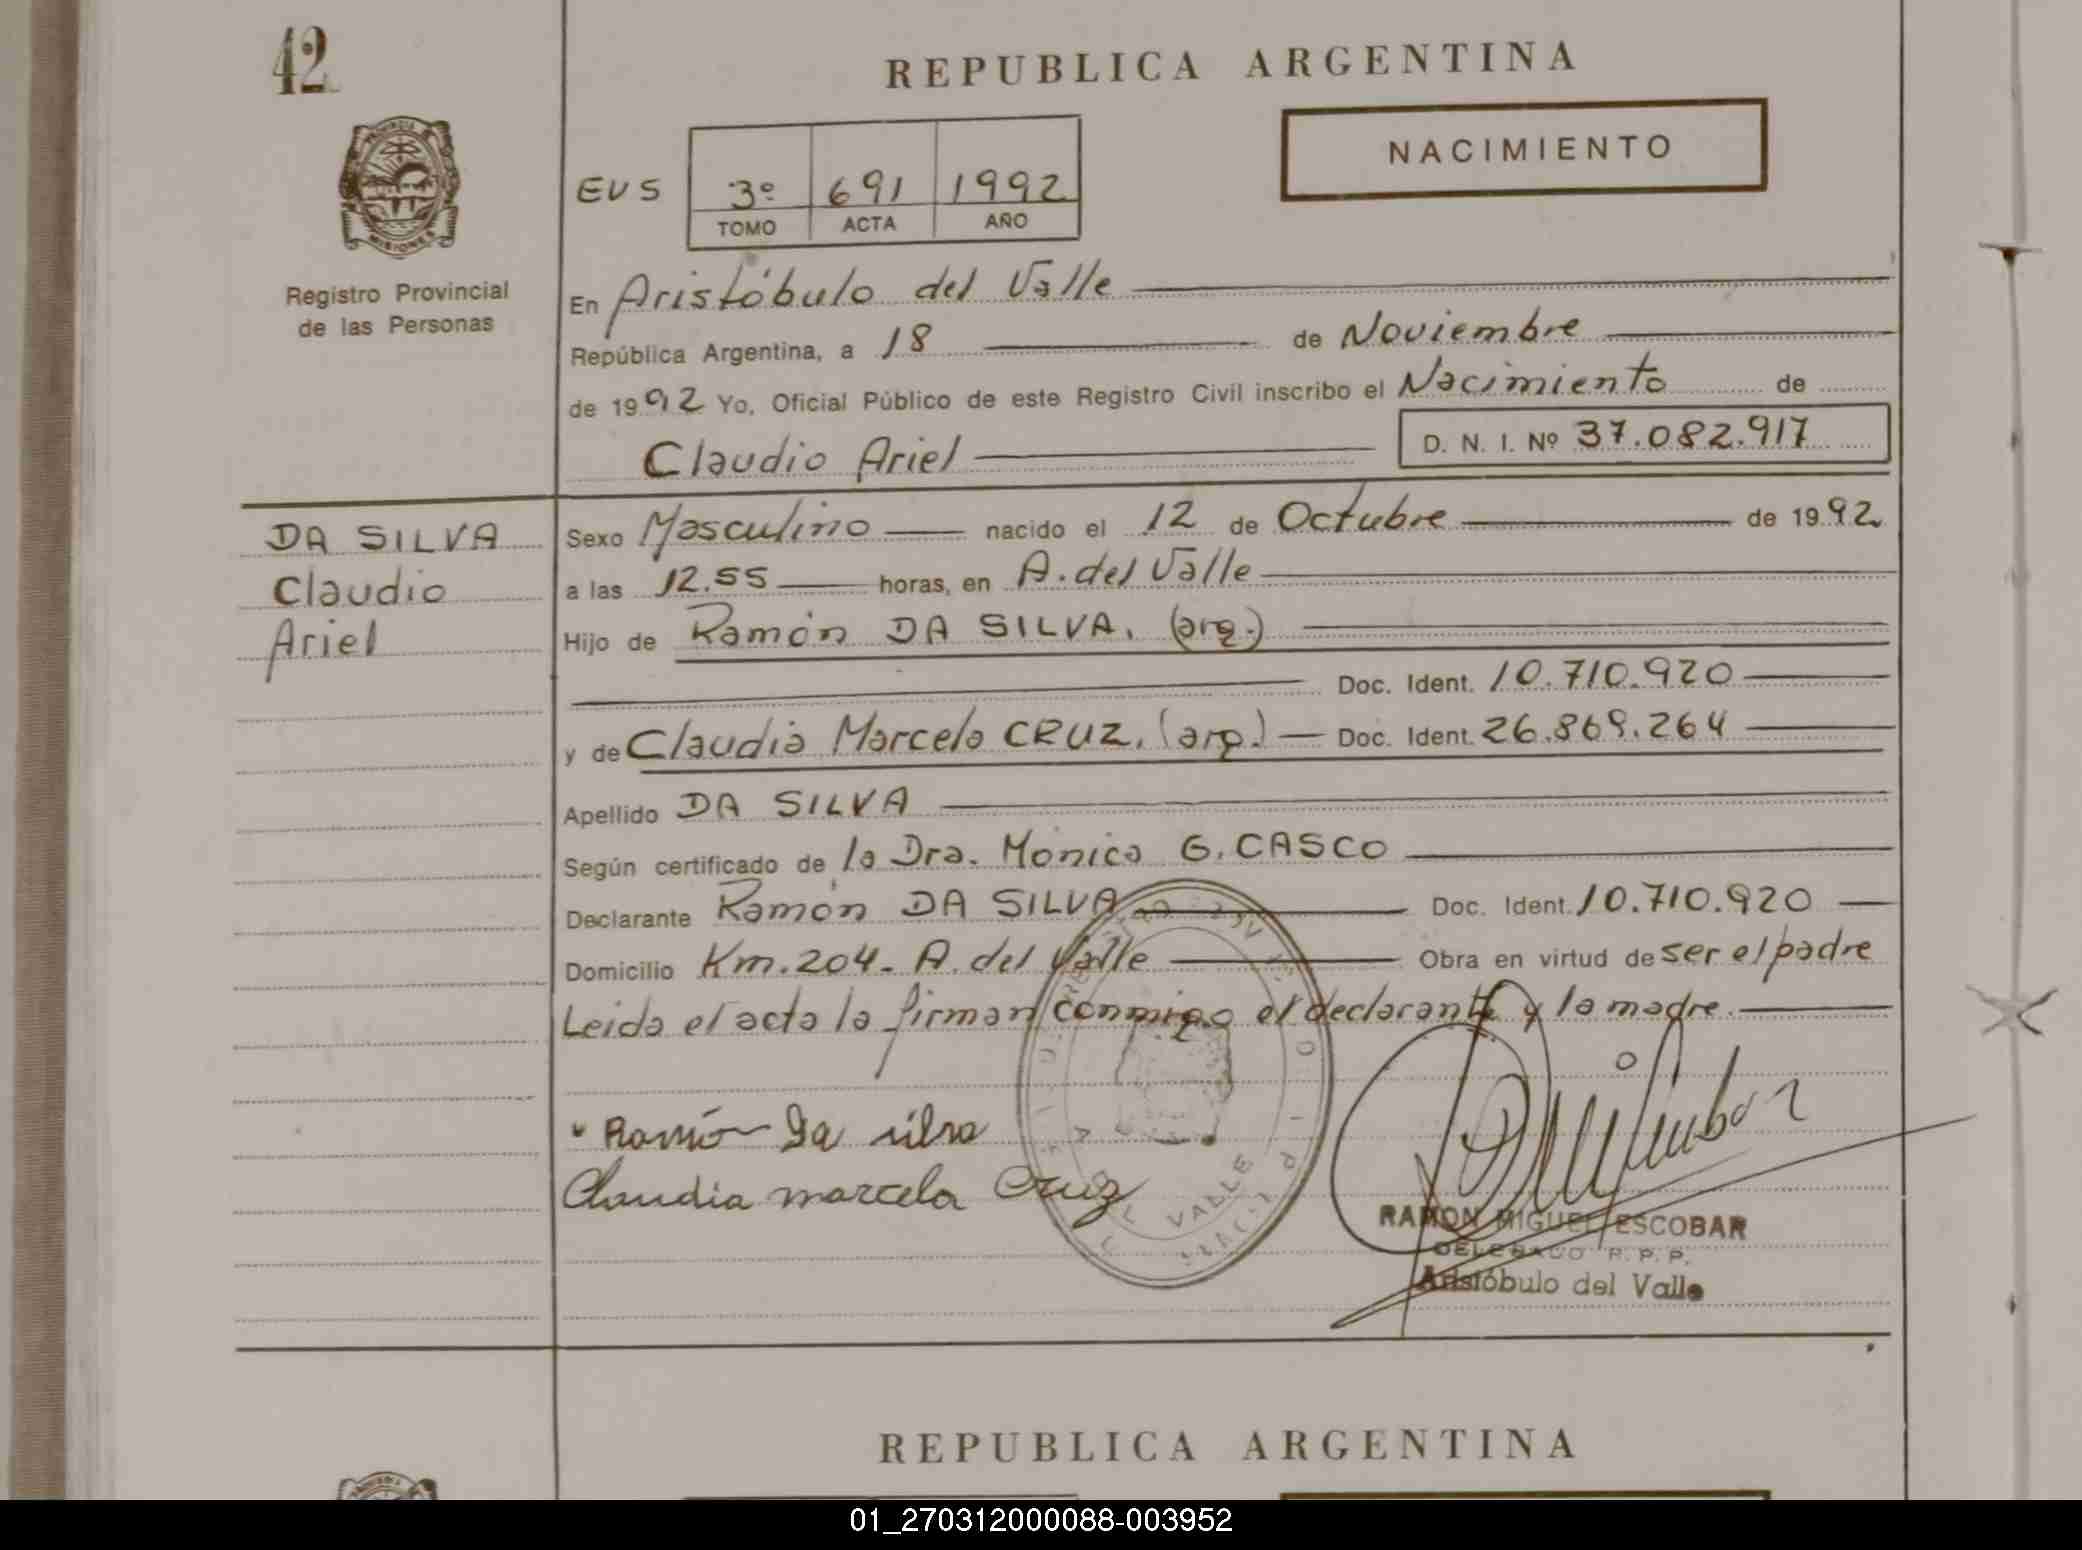 42
REPUBLICA ARGENTINA
NACIMIENTO
EVS 3º 691 1992
TOMO ACTA AÑO
PROVINCIA
MISIONES
Registro Provincial
de las Personas
En Aristóbulo del Valle
República Argentina, a 18 de Noviembre
de 1992 Yo, Oficial Público de este Registro Civil inscribo el Nacimiento de
Claudio Ariel D. N. I. Nº 37.082.917
DA SILVA
Claudio
Ariel
Sexo Masculino nacido el 12 de Octubre de 1992
a las 12.55 horas, en A. del Valle
Hijo de Ramón DA SILVA. (arg.)
Doc. Ident. 10.710.920
y de Claudia Marcela CRUZ. (arg.) Doc. Ident. 26.869.264
Apellido DA SILVA
Según certificado de la Dra. Mónica G. CASCO
Declarante Ramón DA SILVA Doc. Ident. 10.710.920
Domicilio Km. 204- A. del Valle Obra en virtud de ser el padre
Leida el acta la firman conmigo el declarante y la madre.
Ramón Da silva
Claudia marcela Cruz
VALLE
RAMON MIGUEL ESCOBAR
DELEGADO R. P. P.
Aristóbulo del Valle
REPUBLICA ARGENTINA
01_270312000088-003952